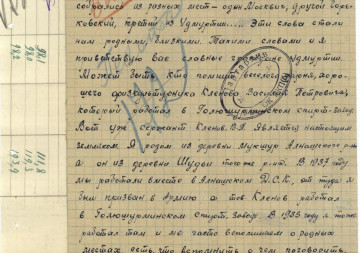 собрались из разных мест – один Москвич, другой Горь-
ковский, третий из Удмуртии.... Эти слова стали
ним родными, близкими. Такими словами и я
приветствую вас славные граждане Удмуртии.
Может быть кто помнит веселого парня, хоро-
шего физкультурника Кленова Василия Петровича,
который работал в Голюшурминском спирт-заводе.
Вот уже сержант Кленов В.П. является настоящим
земляком. Я родом из деревни Мукшур Алнашского р-на
а он из деревни Шудзи тоже р-на. В 1937 году
мы работали вместе в Алнашском Д.С.К, оттуда я
был призван в Армию а тов Кленов работал
в Голюшурминском спирт. заводе. В 1935 году я тоже
работал там и мы часто вспоминаем о родных
местах есть что вспомнить о чем поговорить.